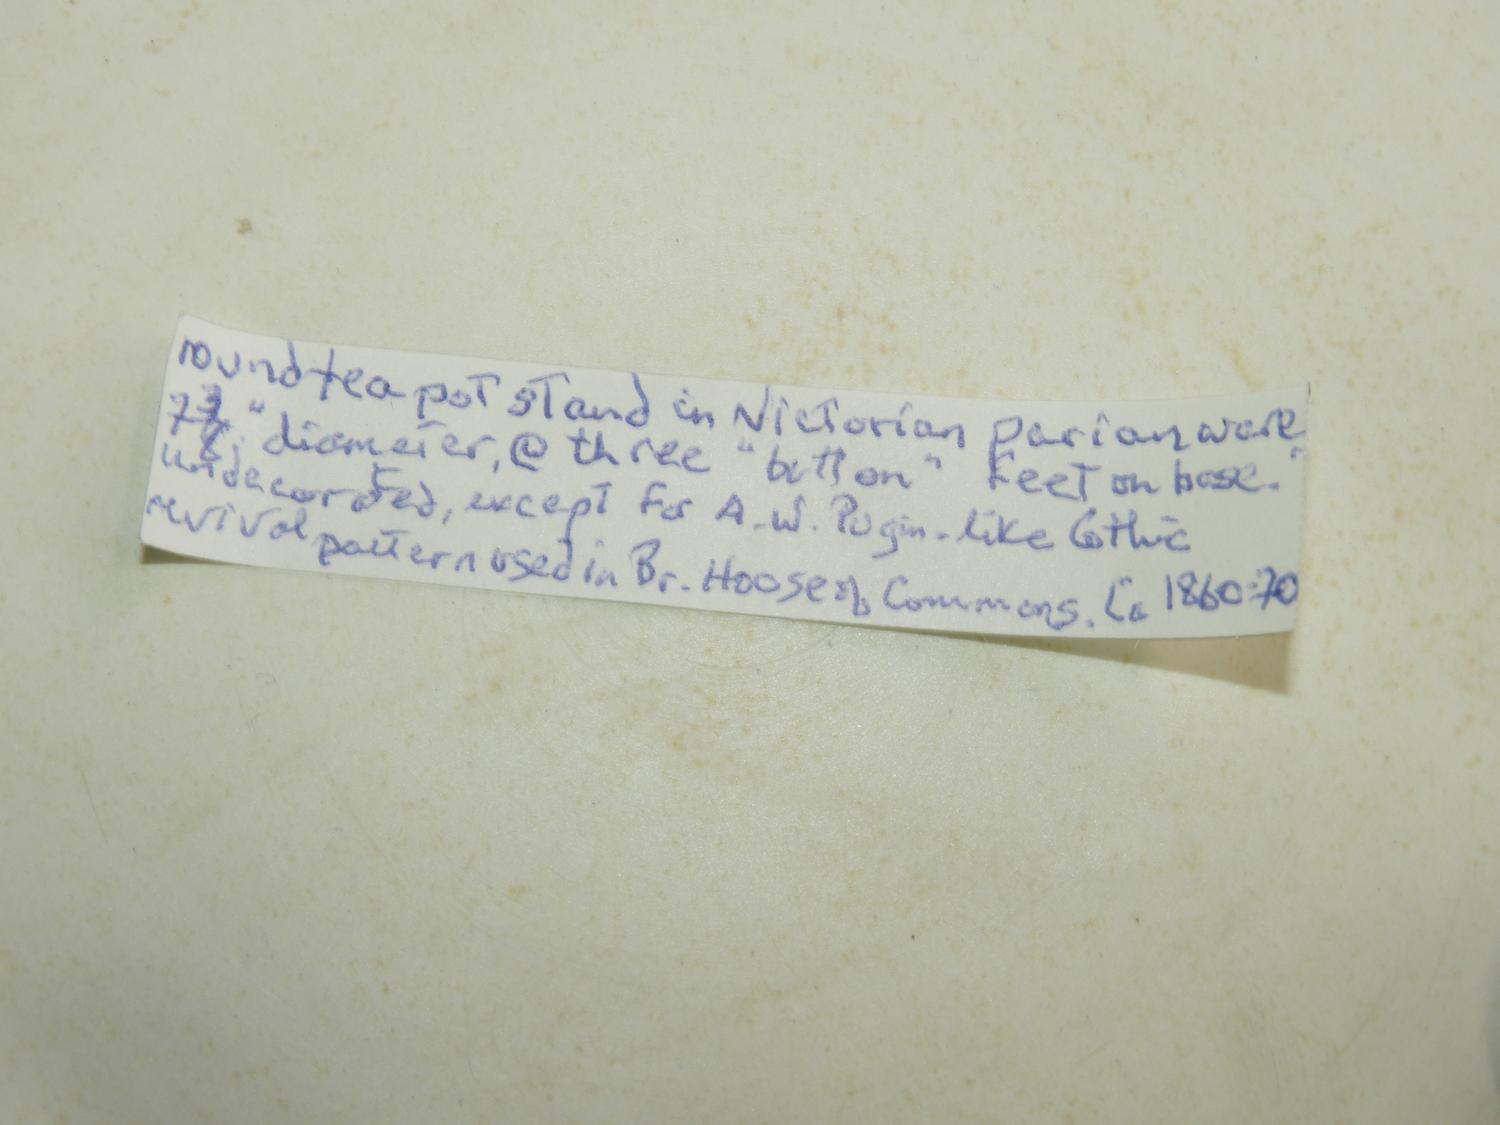 round tea pot stand in Victorian parian ware
7 " diameter, @ three "button" feet on base.
undecorated, except for A.W. Pugin-like Gothic
revival pattern used in Br. House of Commons. Ca 1860-70